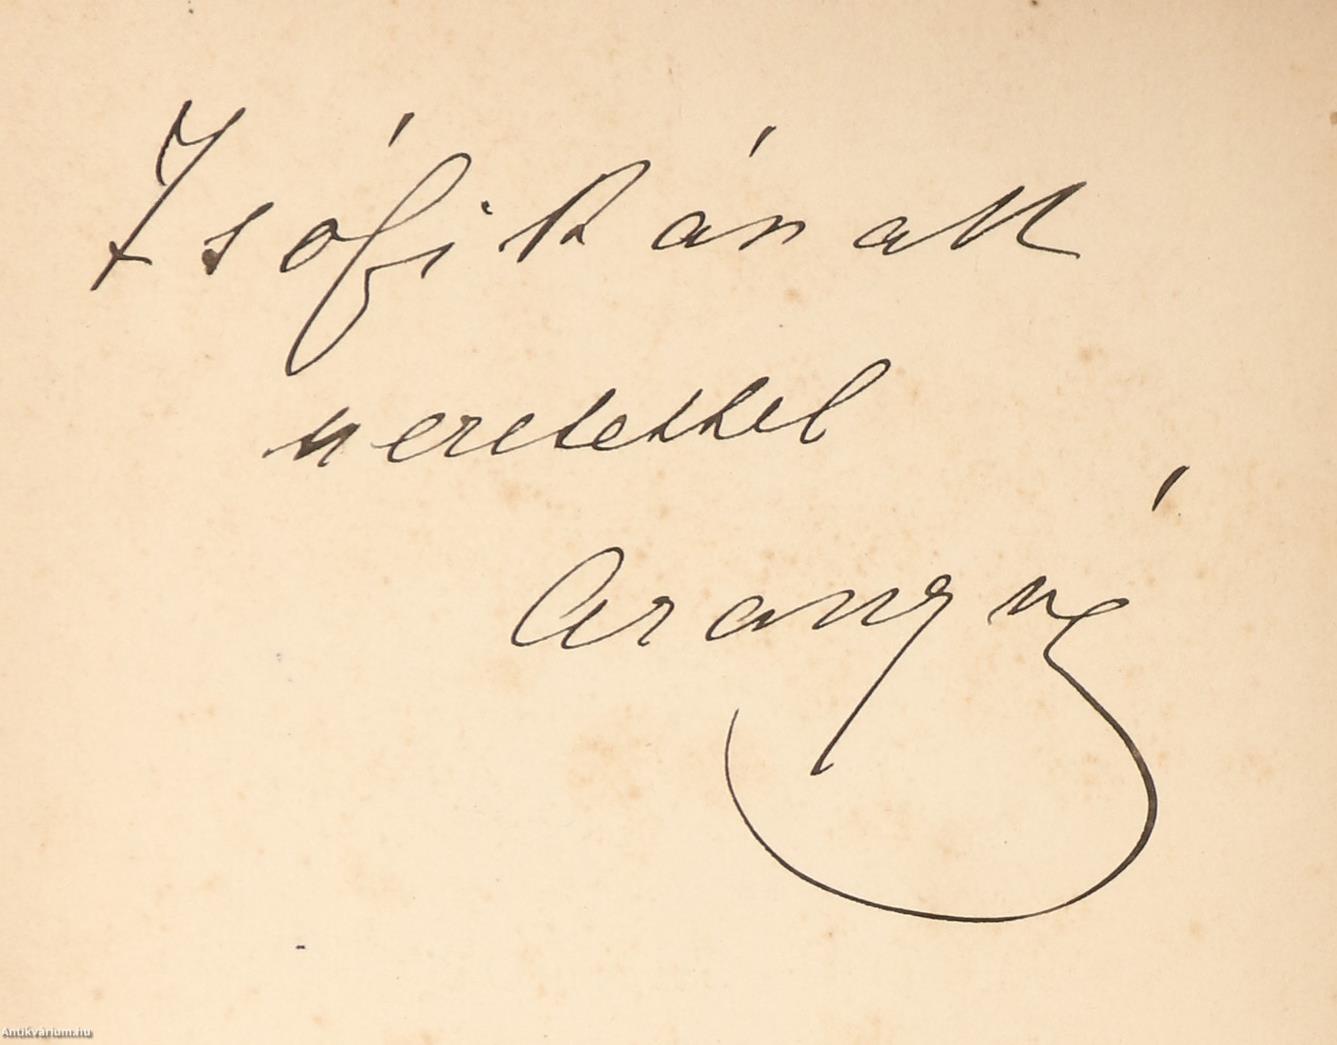 Zsófikának
szeretettel
Aranyné
Antikvárium.hu